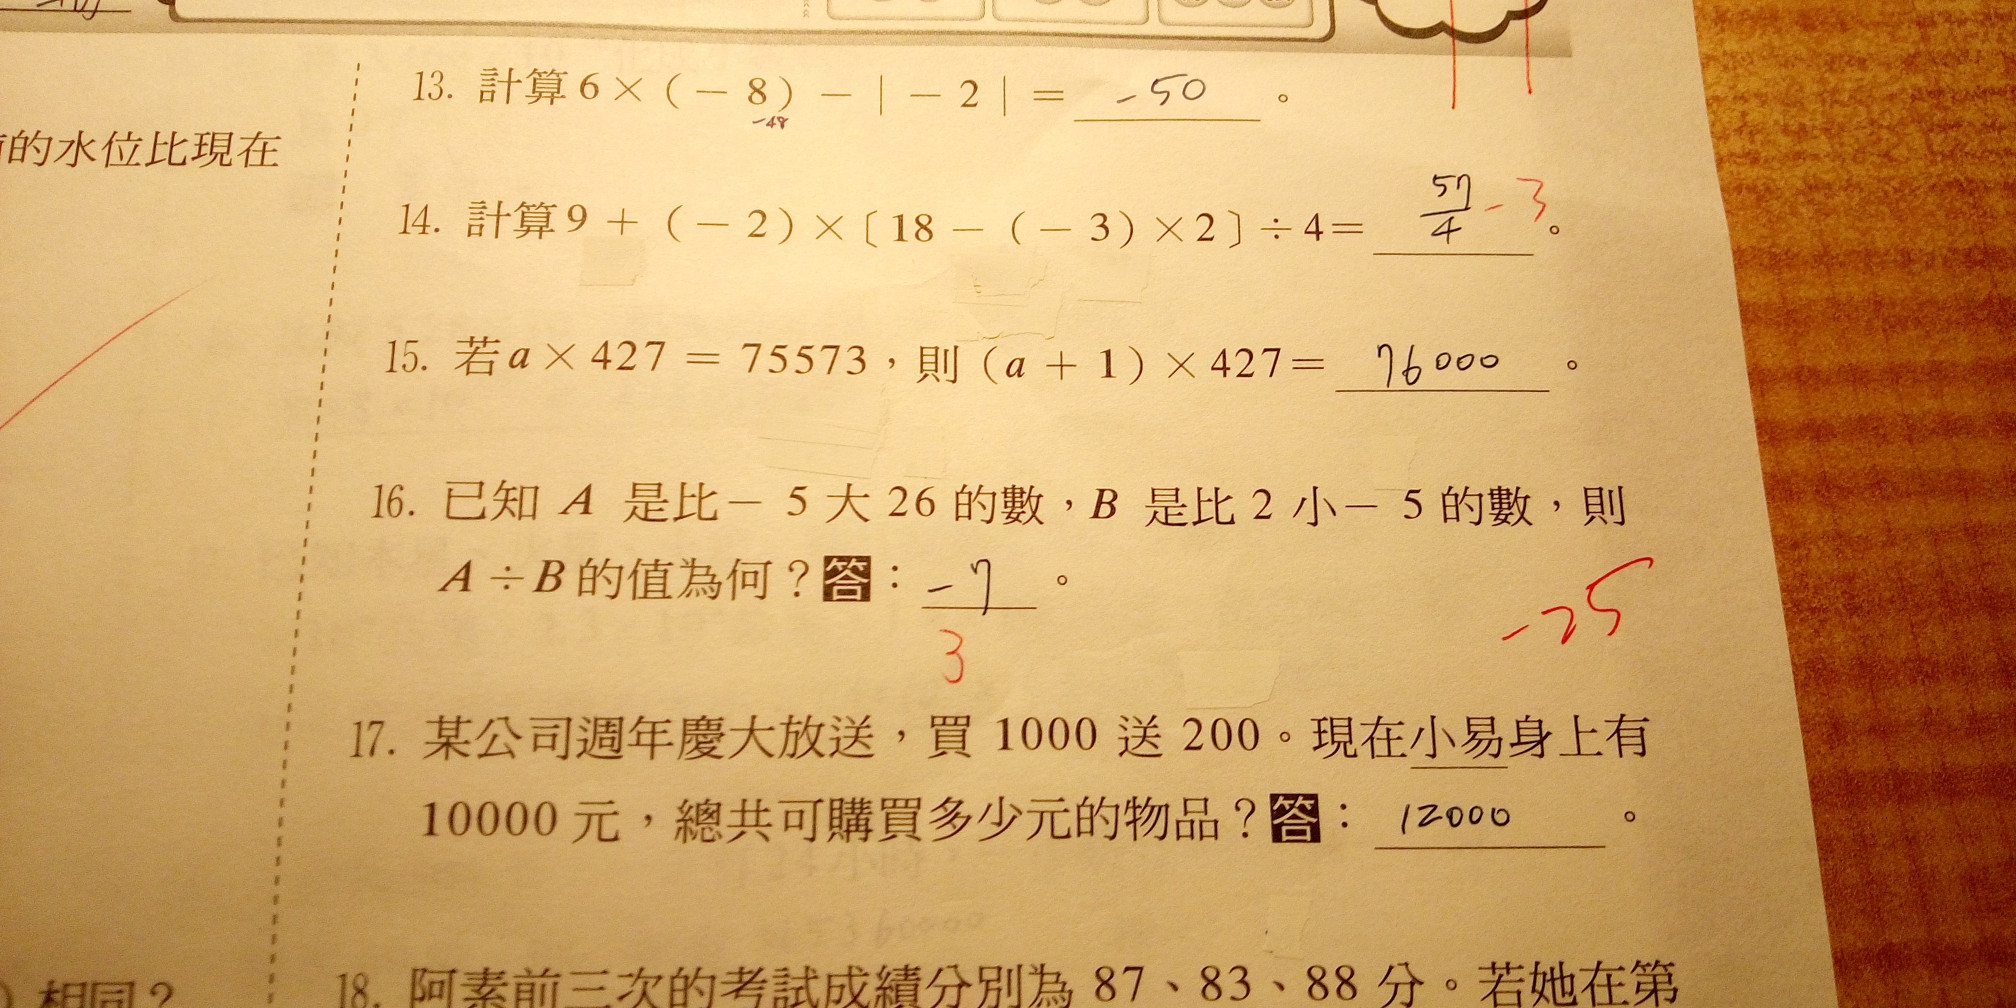 的水位比現在
相同？
13. 計算 6 ×（－ 8）－｜－ 2｜＝ -50 。
-48
14. 計算 9 ＋（－ 2）×〔18 －（－ 3）× 2〕÷ 4＝ 57/4 。
-3
15. 若 a × 427 ＝ 75573，則（a ＋ 1）× 427＝ 76000 。
16. 已知 A 是比－ 5 大 26 的數，B 是比 2 小－ 5 的數，則
A ÷ B 的值為何？答： -7 。
3
-25
17. 某公司週年慶大放送，買 1000 送 200。現在小易身上有
10000 元，總共可購買多少元的物品？答： 12000 。
18. 阿素前三次的考試成績分別為 87、83、88 分。若她在第